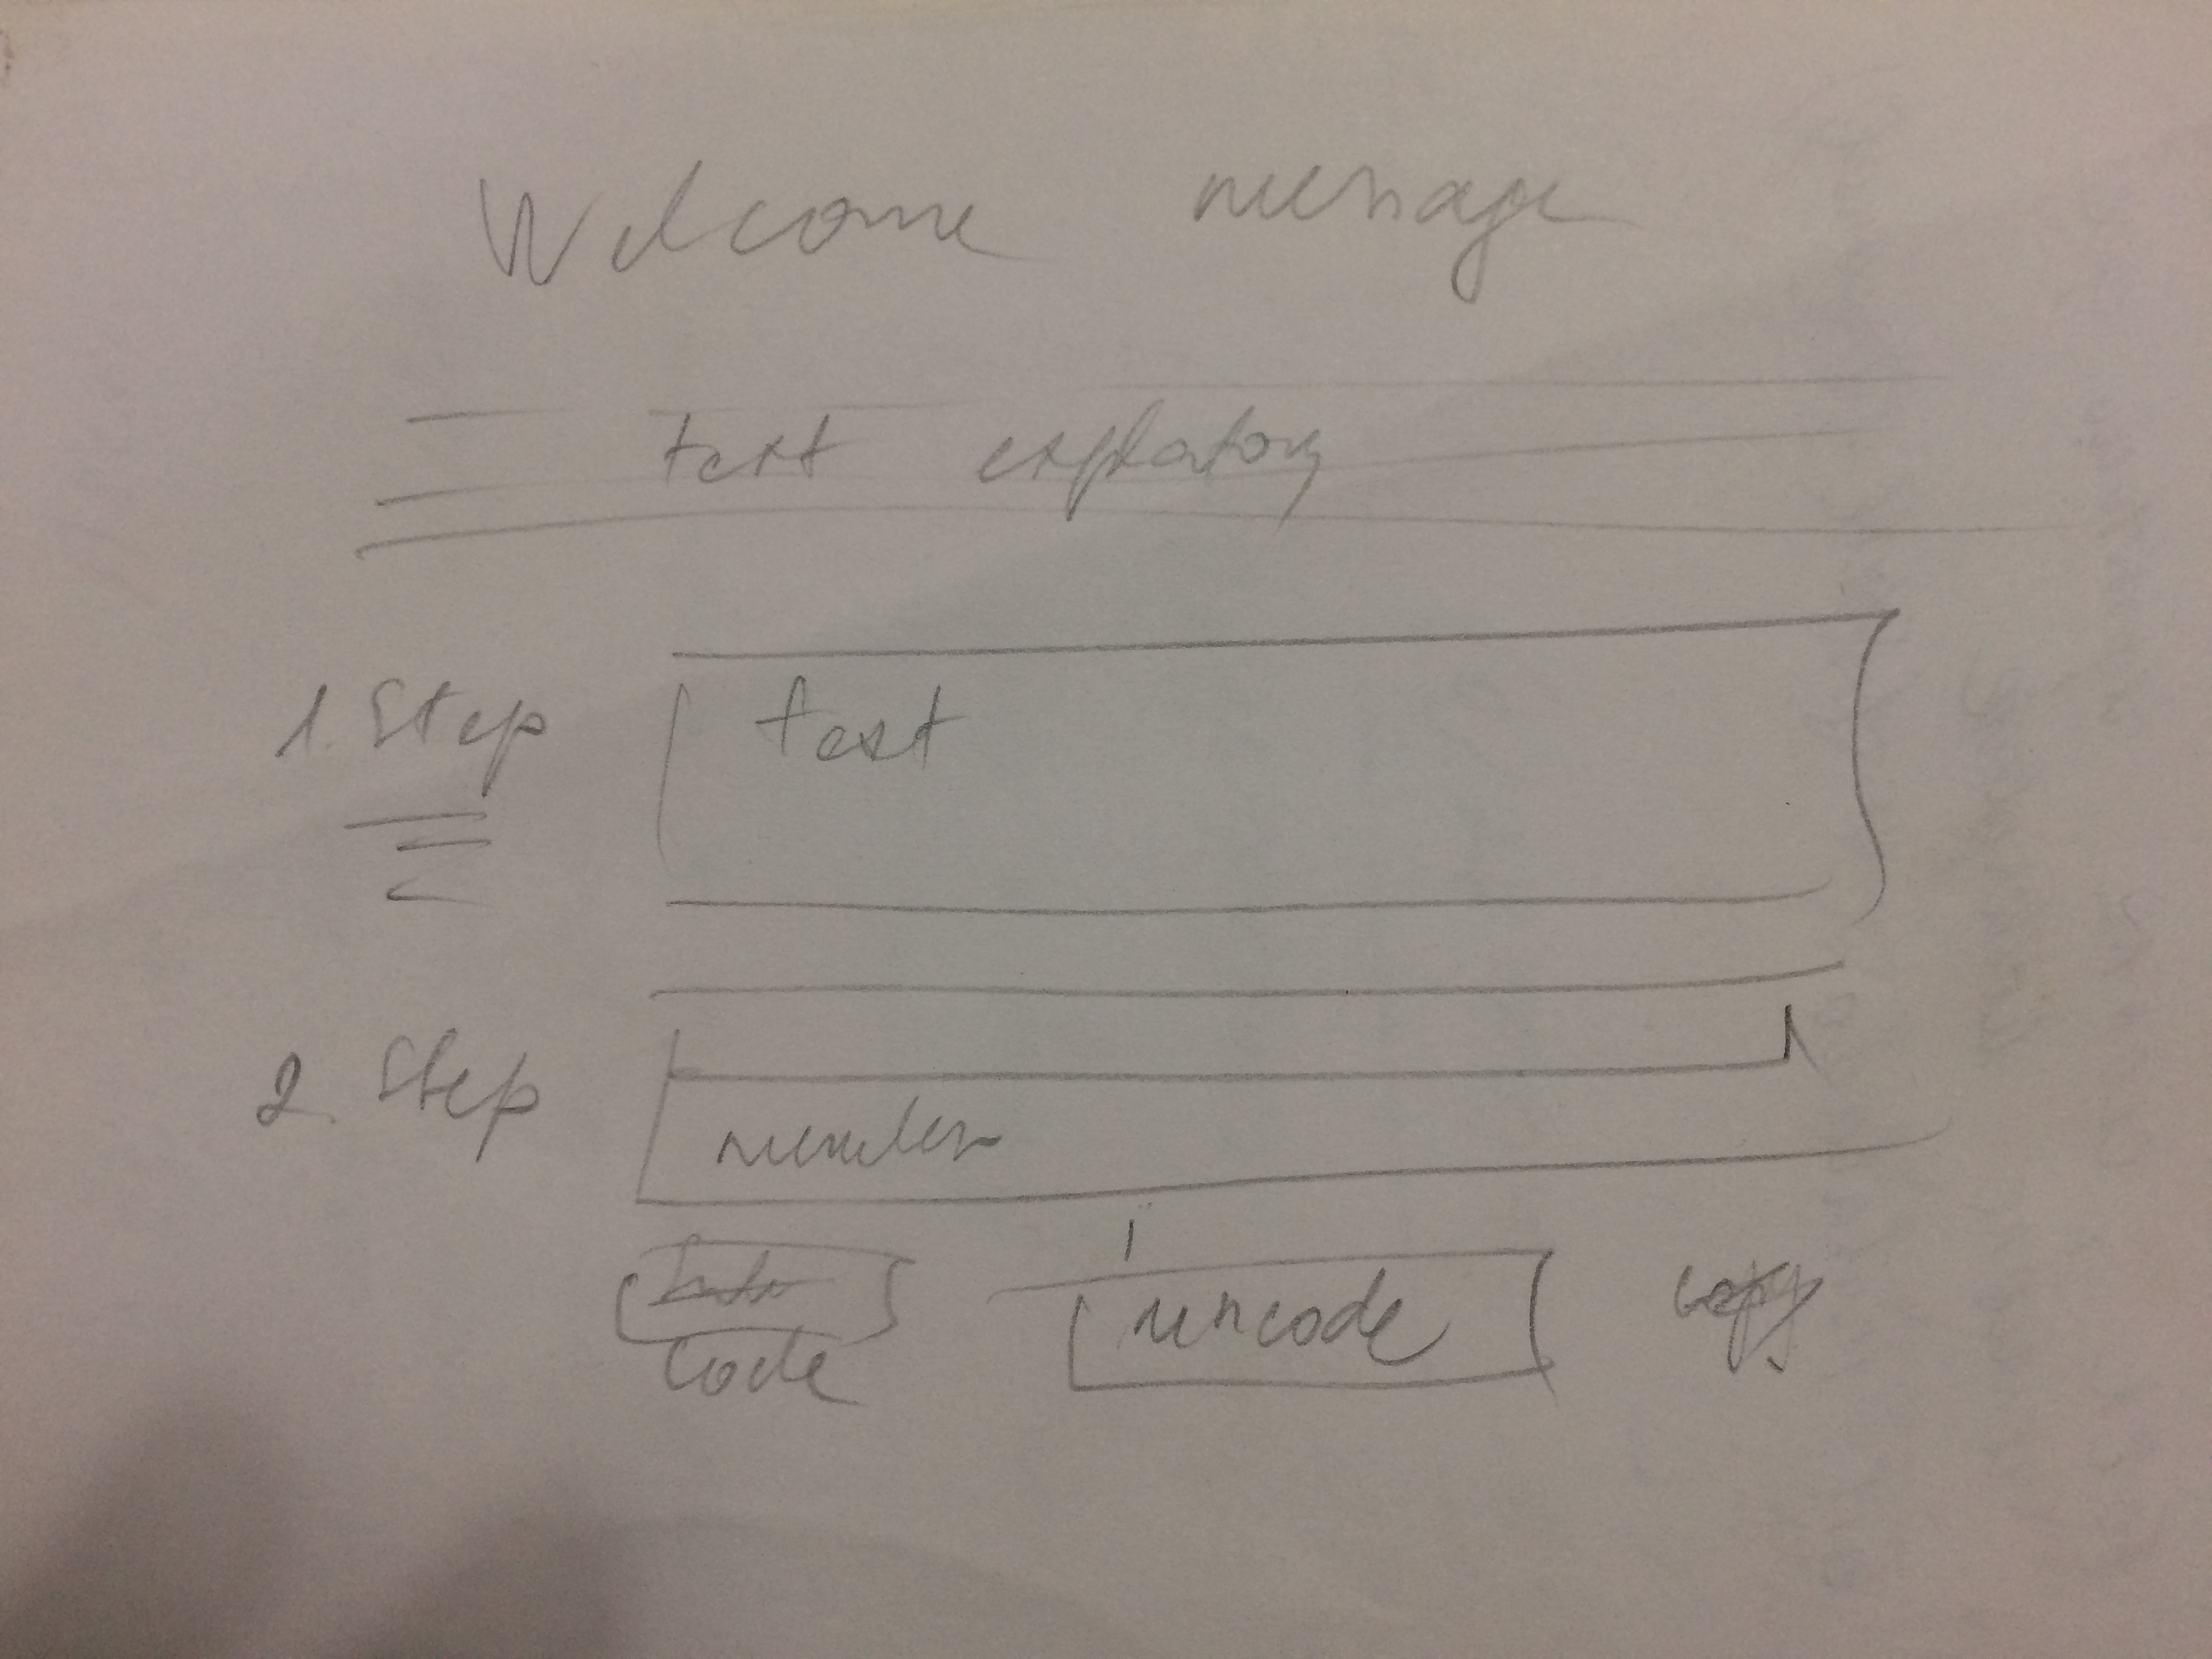 Welcome message
text explatory
1. Step text
2. Step
number
Code uncode copy